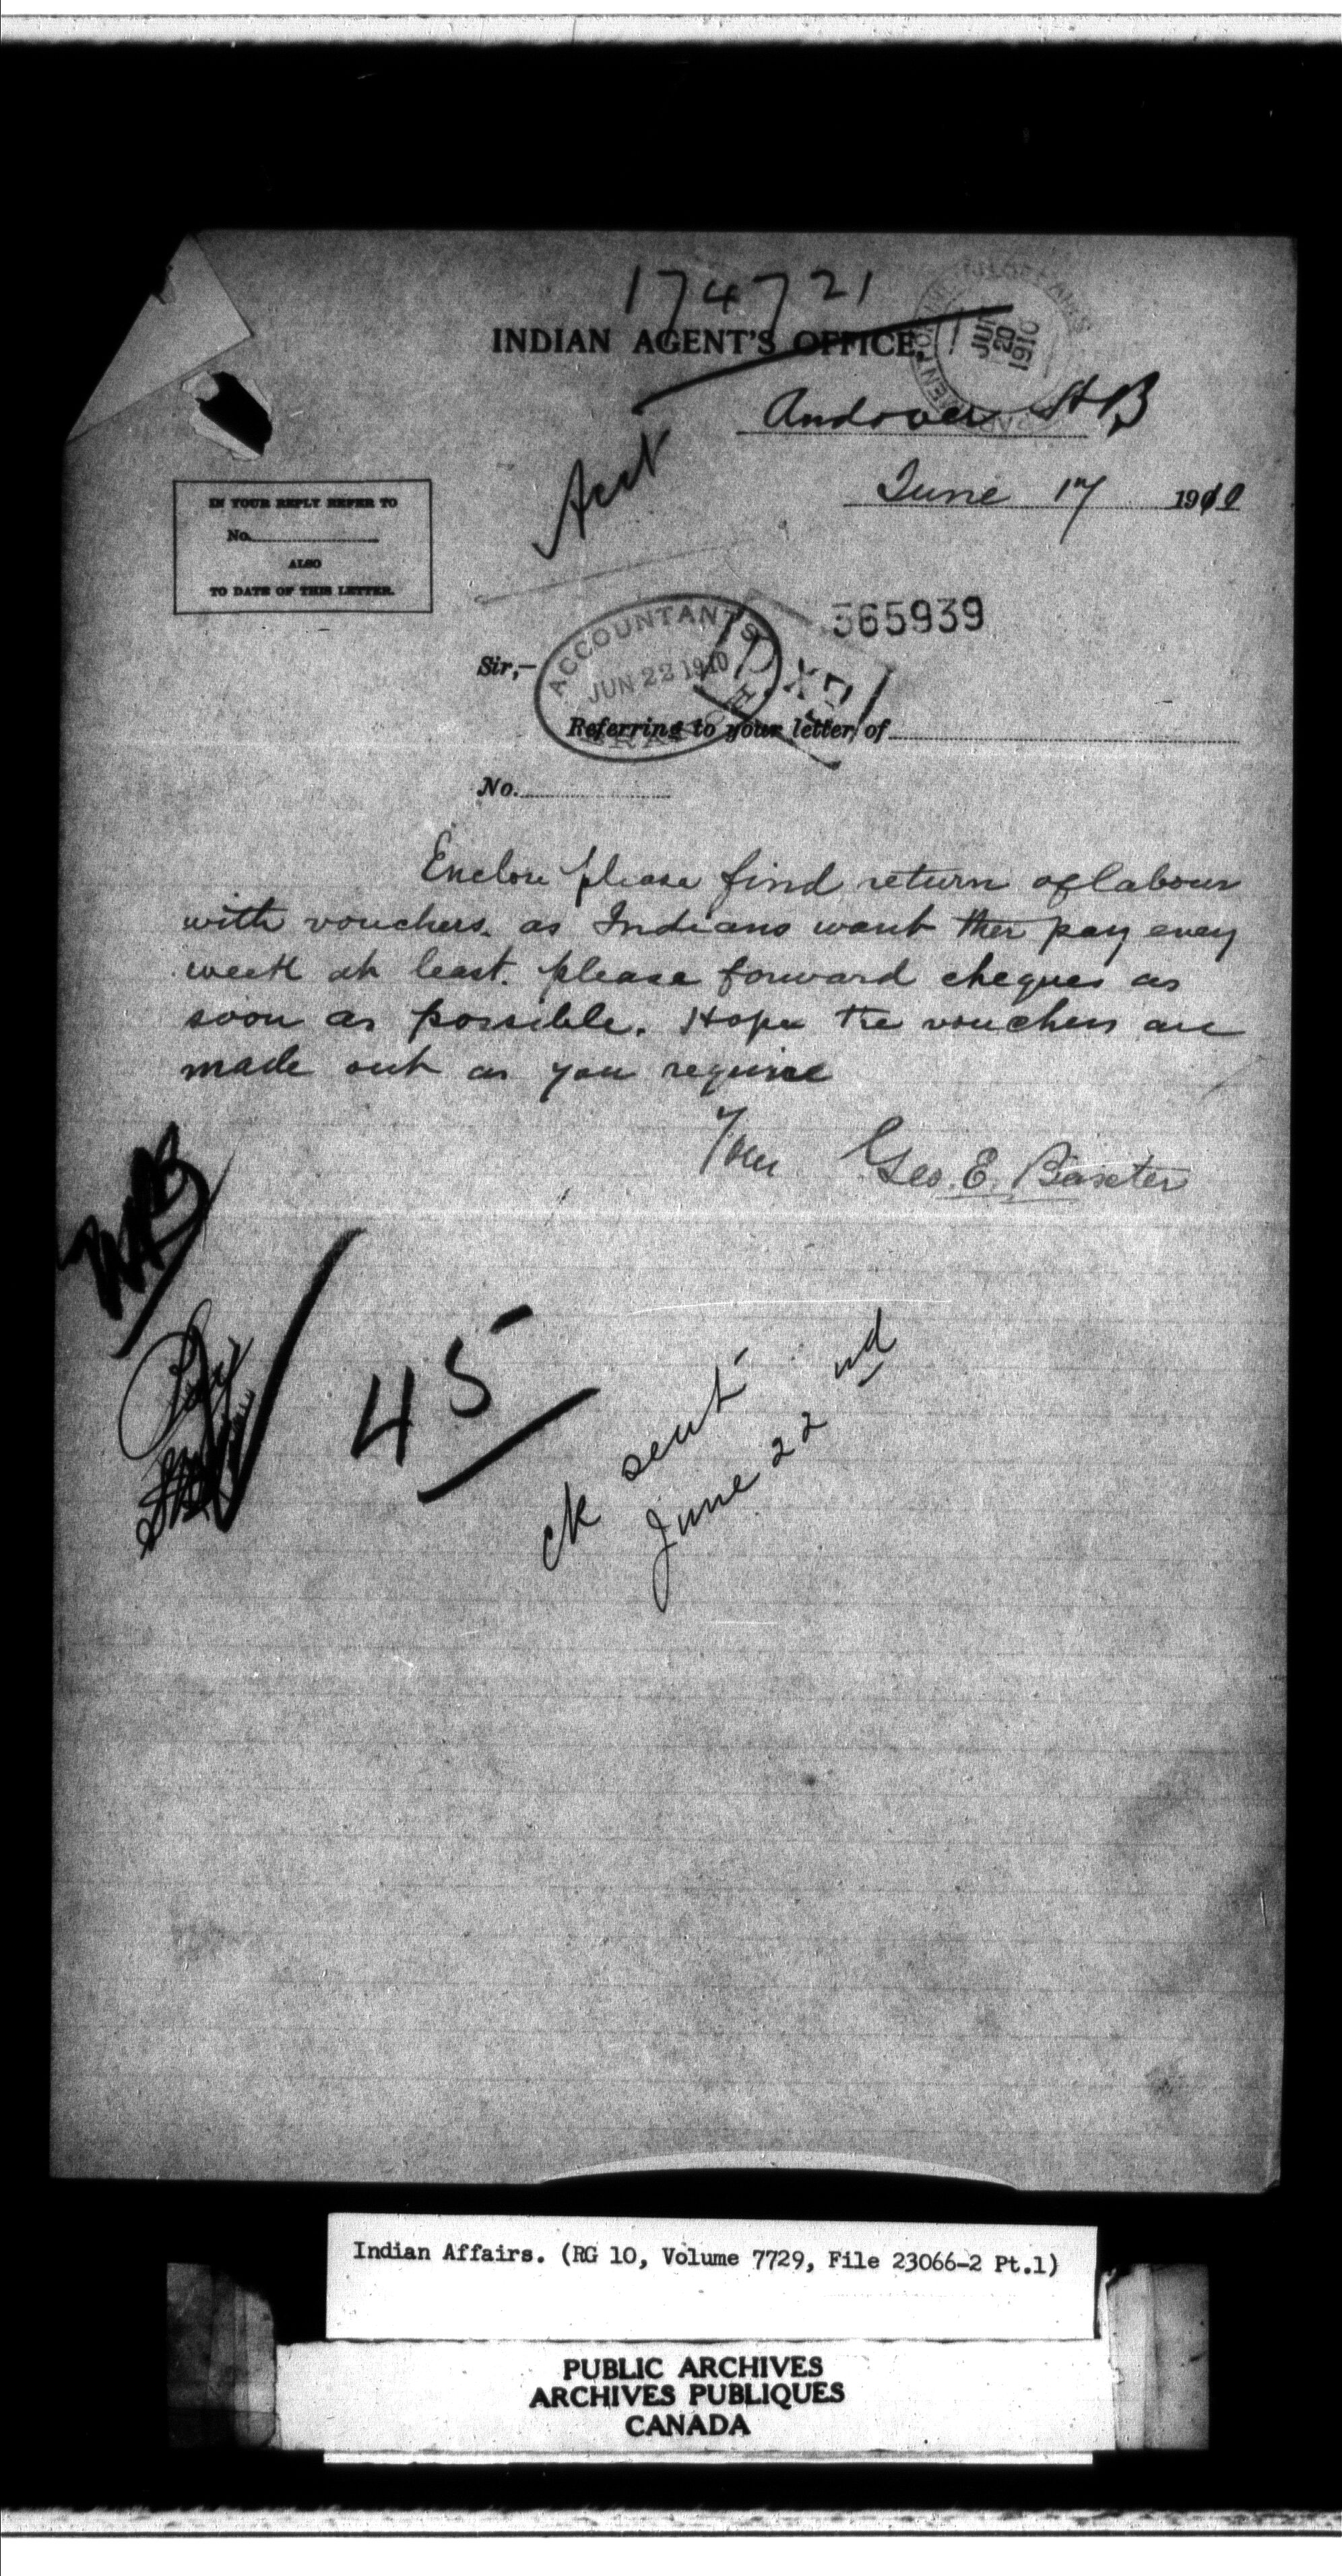 174721
INDIAN AGENT'S OFFICE,
JUN
20
1910
Andover NB
Acct
June 17 1910
IN YOUR REPLY REFER TO
No.
ALSO
TO DATE OF THIS LETTER.
365939
ACCOUNTANT'S
JUN 22 1910
BRANCH
Sir,—
Referring to your letter of
No.
Enclose please find return of labour
with vouchers. as Indians want ther pay every
week at least. please forward cheques as
soon as possible. Hope the vouchers are
made out as you require
Your Geo. E. Baxter
45
ck sent
June 22nd
Indian Affairs. (RG 10, Volume 7729, File 23066-2 Pt.1)
PUBLIC ARCHIVES
ARCHIVES PUBLIQUES
CANADA